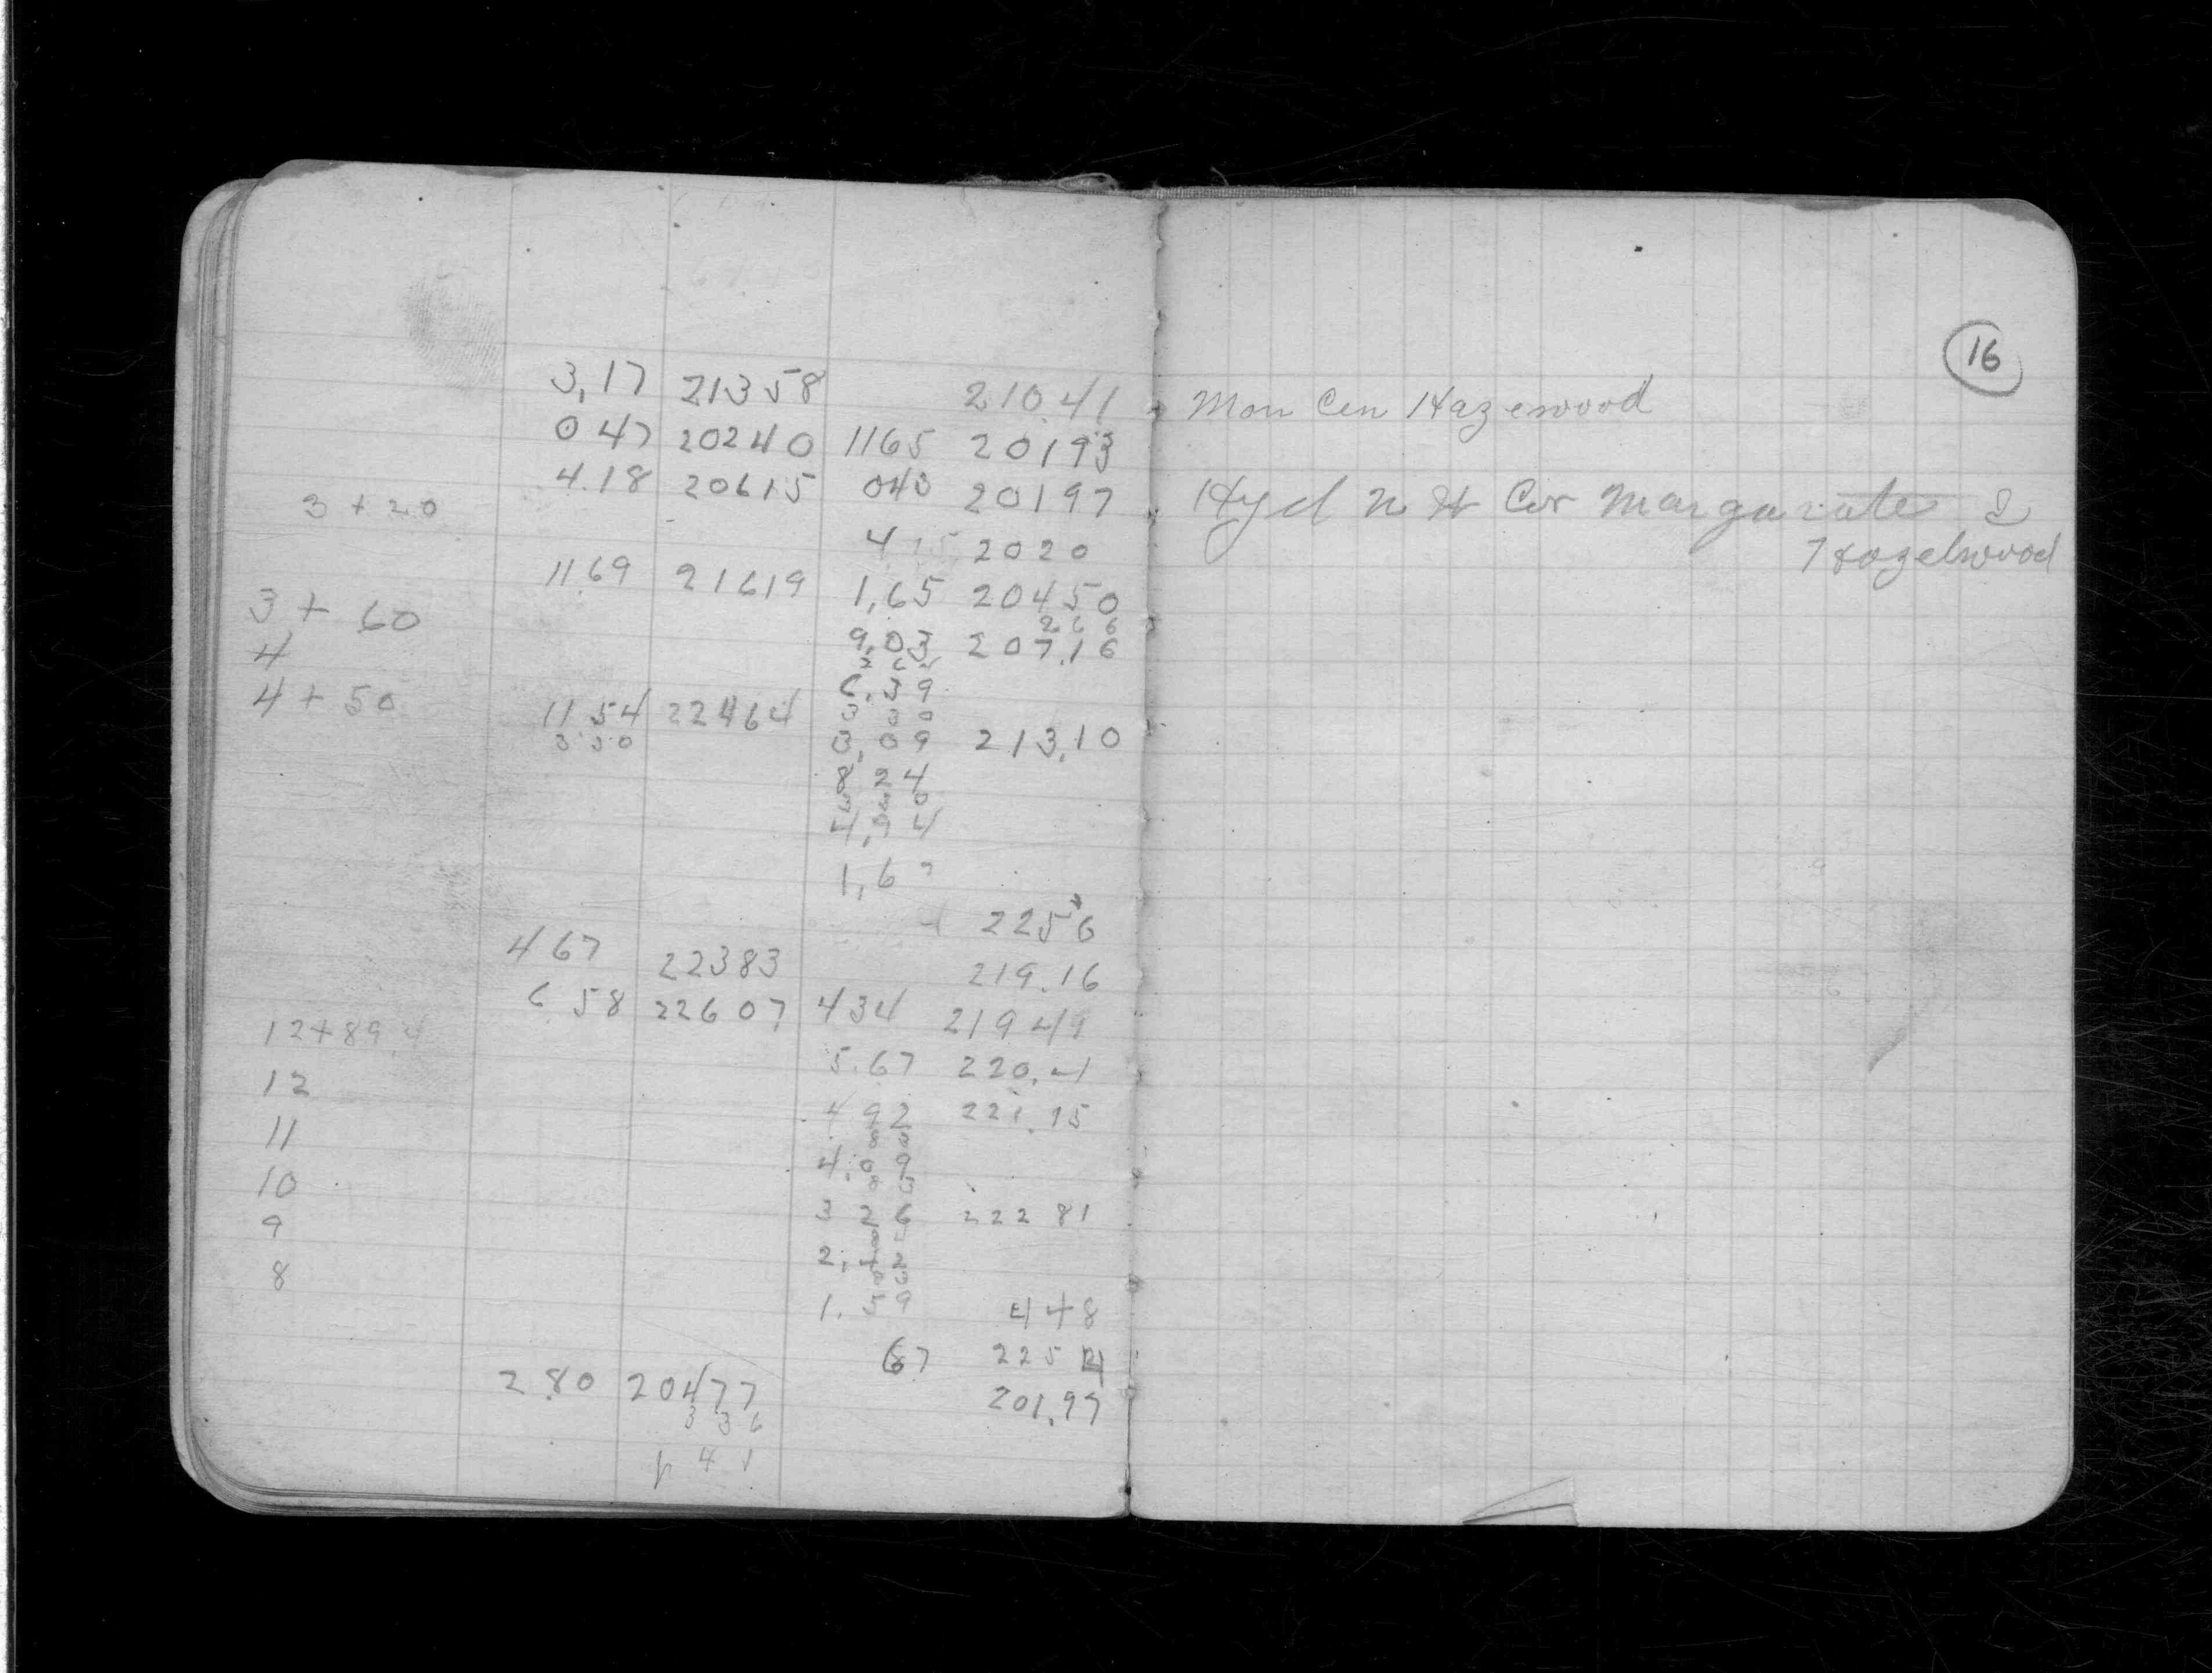 3,17 21358 210.41
047 20240 1165 20193
3 + 20 4.18 20615 043 20197
4 15 2020
1169 21619 1,65 20450
266
3 + 60 9,03 207.16
4 2 6
6.39
4 + 50 11 54 22464 3 30
3 50 3,09 213,10
8 24
4, 4
1,6
225 6
467 22383 219.16
12+89.4 6 58 22607 434 219 49
5.67 220.41
12 492 221.15
83
11 4.09
83
10 3 26 222 81
9 2.
8 1.59 448
67 225
280 20477 201.97
3 36
1 41
16
Mon Cen Hazewood
Hyd N W Cor Margarate &
Hazelwood